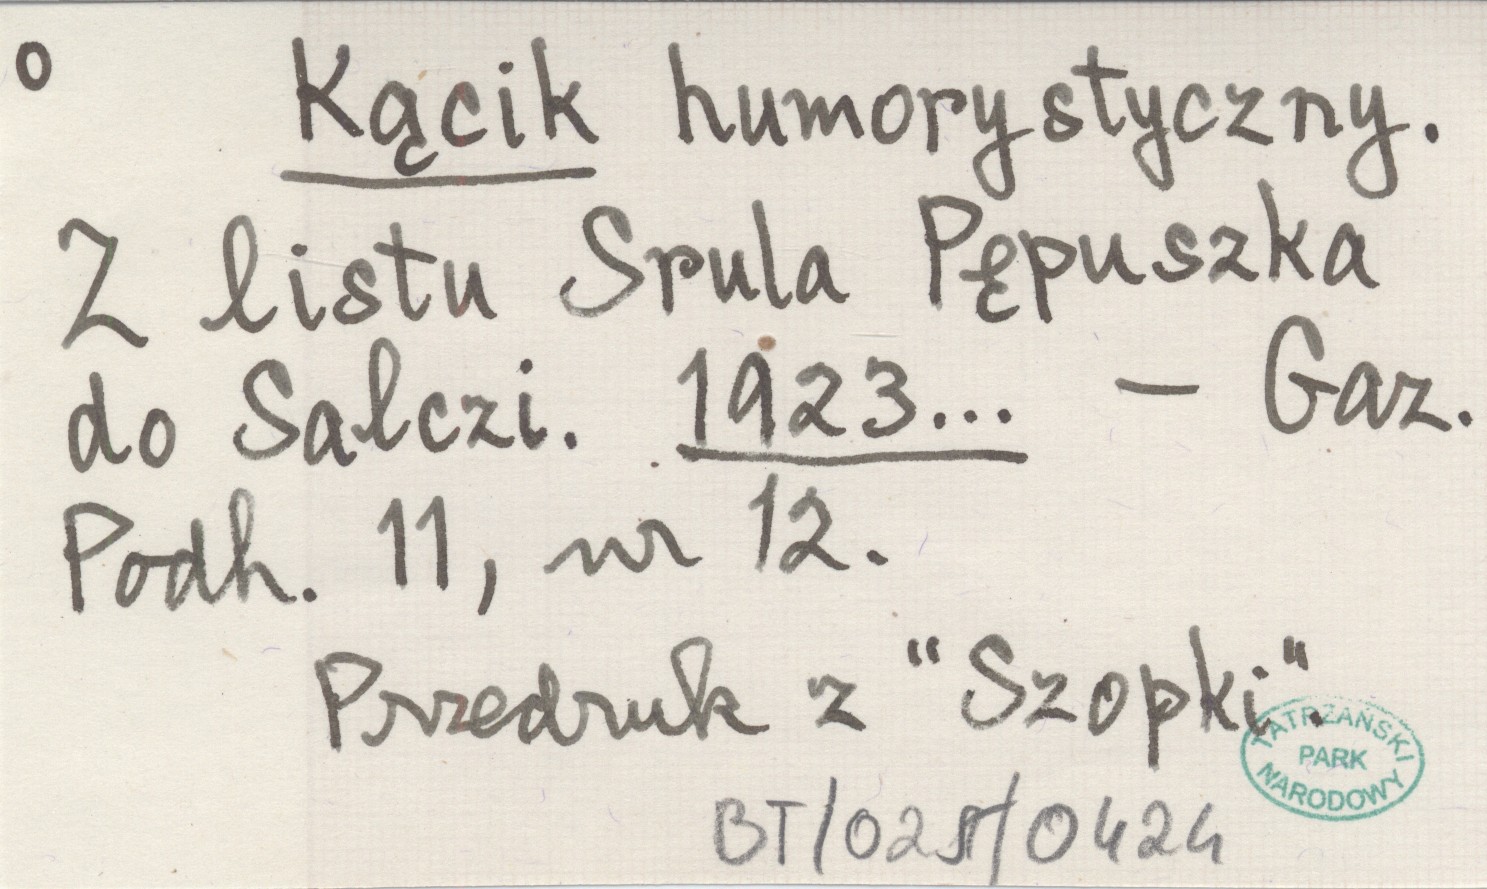 o Kącik humorystyczny.
Z listu Srula Pępuszka
do Salczi. 1923... – Gaz.
Podh. 11, nr 12.
Przedruk z "Szopki".
TATRZAŃSKI
PARK
NARODOWY
BT/025/0424